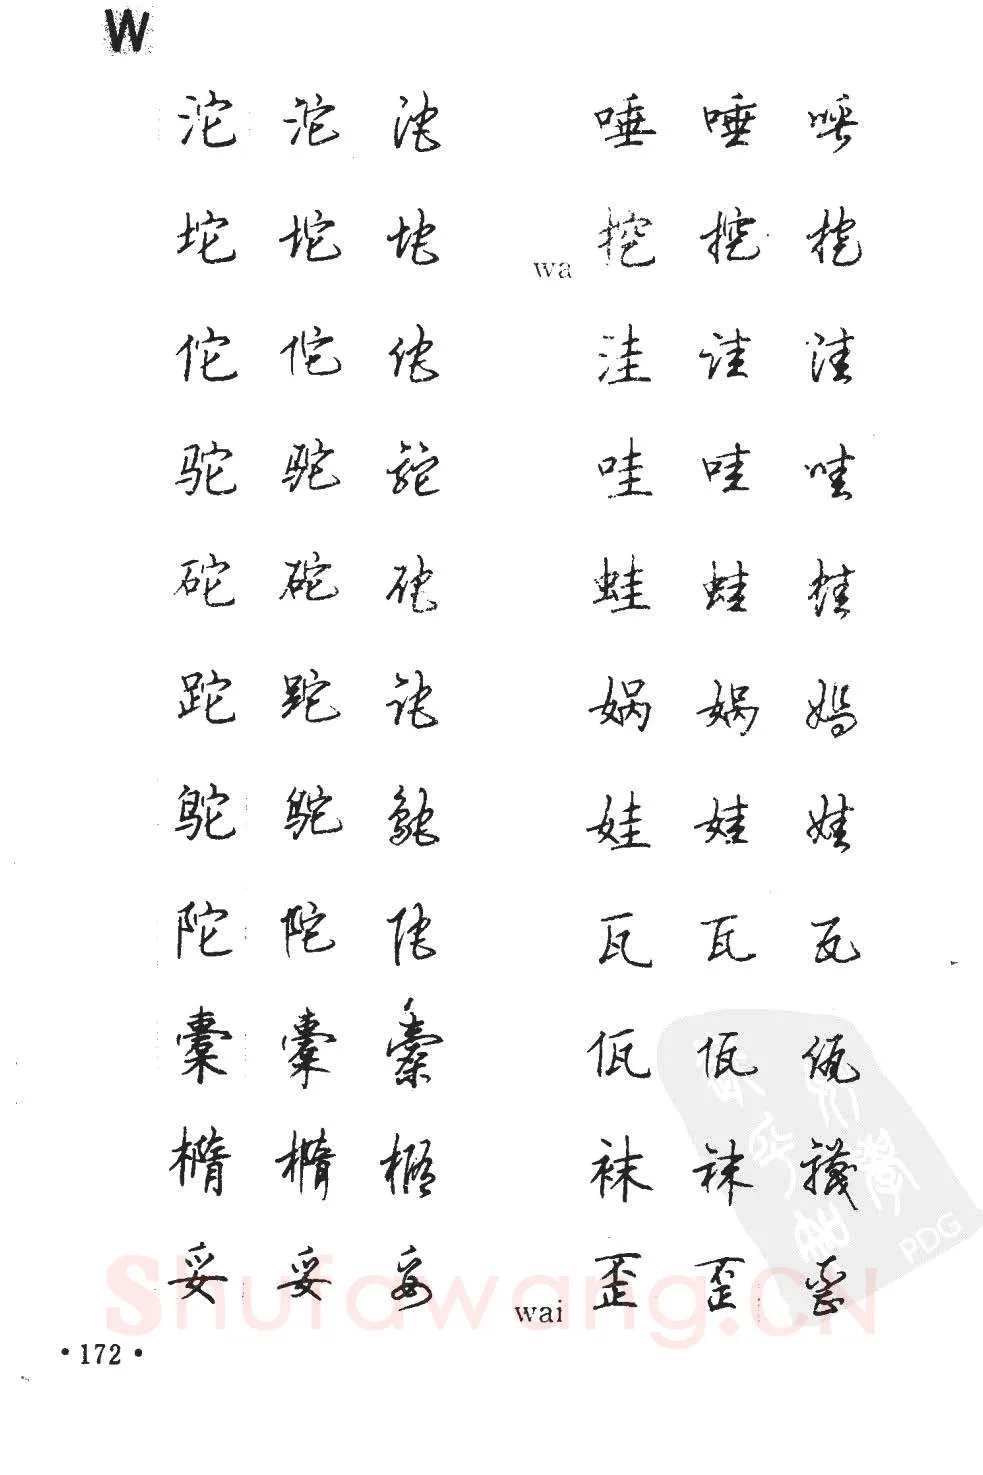 W
沱 沱 沱
坨 坨 坨
佗 佗 佗
驼 驼 駝
砣 砣 砣
跎 跎 跎
鸵 鸵 鴕
陀 陀 陀
橐 橐 橐
椭 橢 橢
妥 妥 妥
唾 唾 唾
wa 挖 挖 挖
洼 洼 洼
哇 哇 哇
蛙 蛙 蛙
娲 娲 媧
娃 娃 娃
瓦 瓦 瓦
佤 佤 佤
袜 袜 襪
wai 歪 歪 歪
·172·
Shufawang.CN
PDG